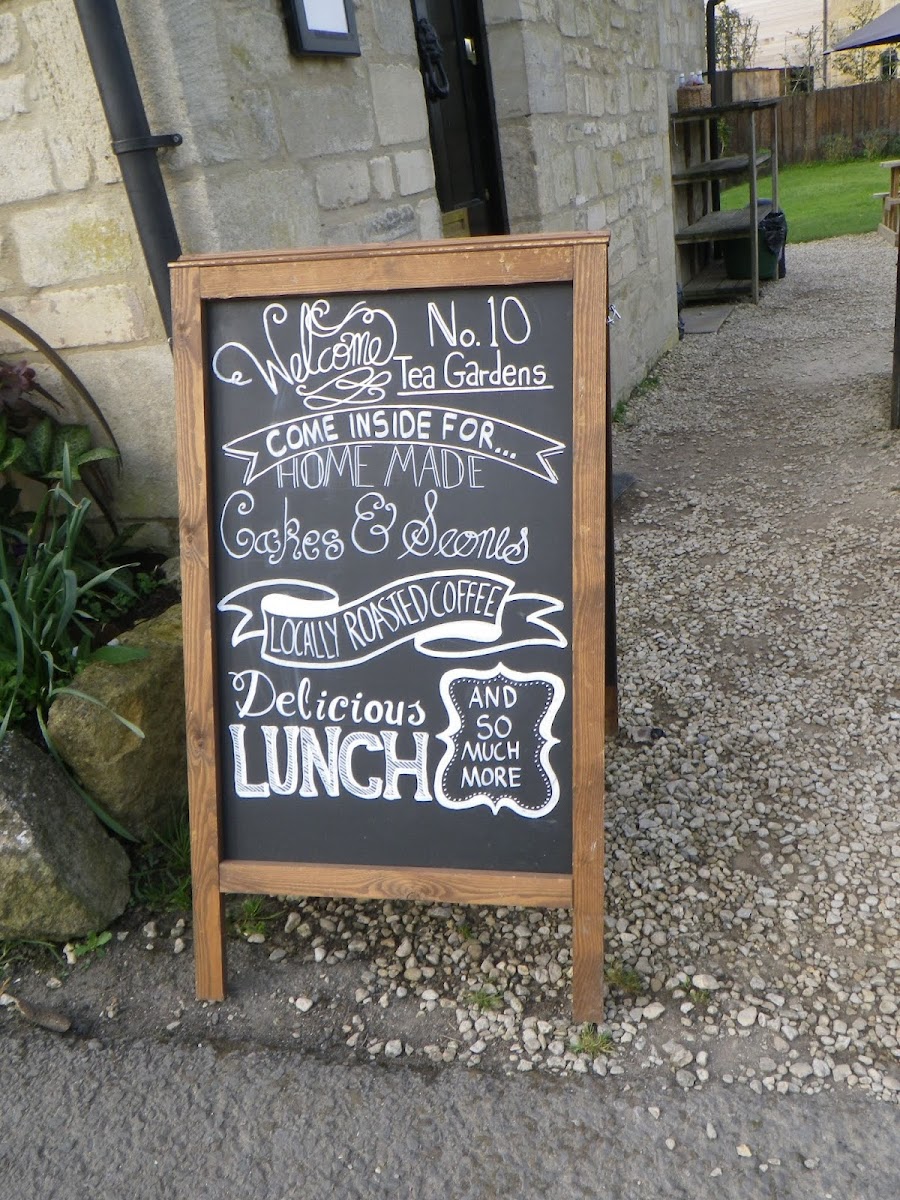 Welcome
No. 10
Tea Gardens
COME INSIDE FOR...
HOME MADE
Cakes & Scones
LOCALLY ROASTED COFFEE
Delicious
LUNCH
AND
SO
MUCH
MORE